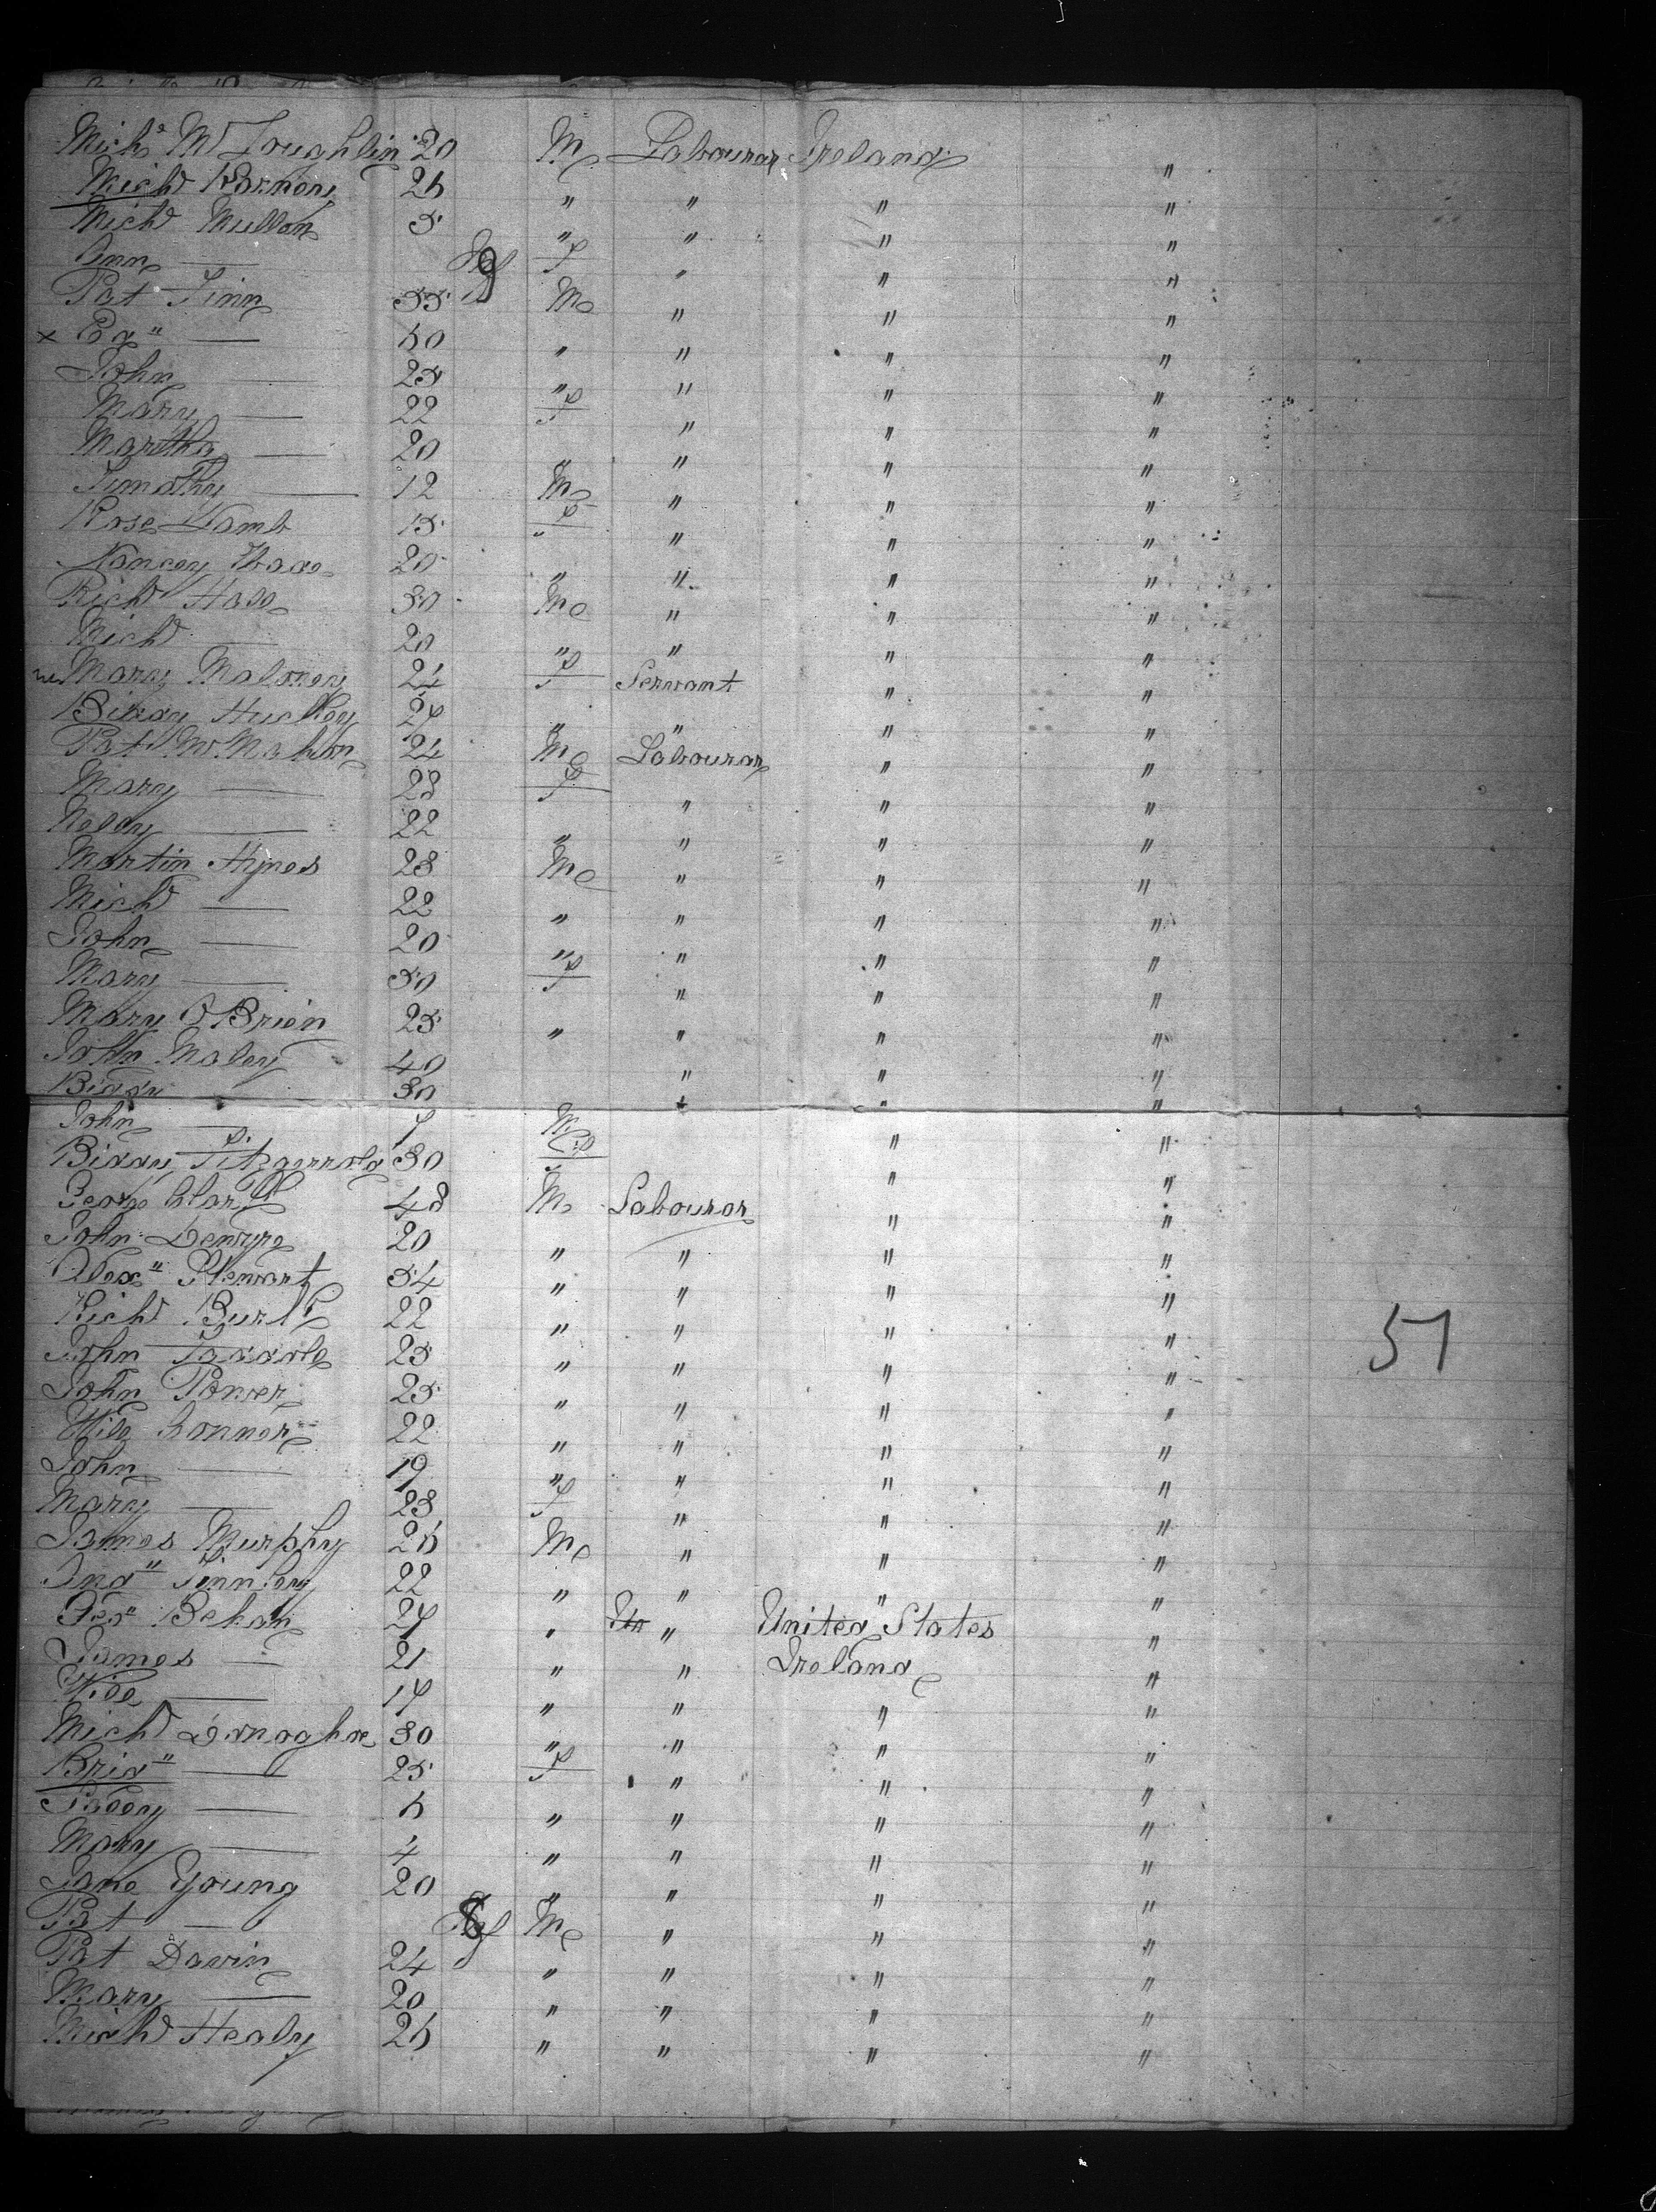 Mich.d Mc Loughlin 20 M Labourer Ireland "
Mich.d 26 " " " "
Mich.d Mullan 5 " " " "
Ann — Inf F " " "
Pat Finn 55 M " " "
x — 60 " " " "
John — 25 " " " "
Mary — 22 F " " "
Martha — 20 " " " "
Timothy — 12 M " " "
Rose Lamb 15 F " " "
Nancey 20 " " " "
Rich.d 30 M " " "
Mich.d — 20 " " " "
Mary Maloney 24 F Servant " "
Biddy 27 " " " "
Pat McMahon 24 M Labourer " "
Mary — 23 F " " "
— 22 " " " "
Martin Hynes 23 M " " "
Mich.d — 22 " " " "
John — 20 " " " "
Mary — 50 F " " "
Mary O Brien 25 " " " "
John Maley 40 " " "
Biddy 30 " " "
John — 7 M " "
Biddy Fitzgerrald 30 F " "
George Clark 48 M Labourer " "
John 20 " " " "
Alex" Stewart 54 " " " "
Rich.d Burk 22 " " " "
John 25 " " " "
John Power 25 " " " "
Connor 22 " " " "
John — 19 " " " "
Mary — 23 F " " "
James Murphy 26 M " " "
And" Finnley 22 " " " "
Behan 27 " " United States "
James — 21 " " Ireland "
— 17 " " " "
Mich.d Donoghoe 30 " " " "
Brid" — 25 F " " "
— 6 " " " "
Mary — 4 " " " "
Jane Young 20 " " " "
Pat — Inf M " " "
Pat Davin 24 " " " "
Mary — 20 " " " "
Mich.d Healy 26 " " " "
51